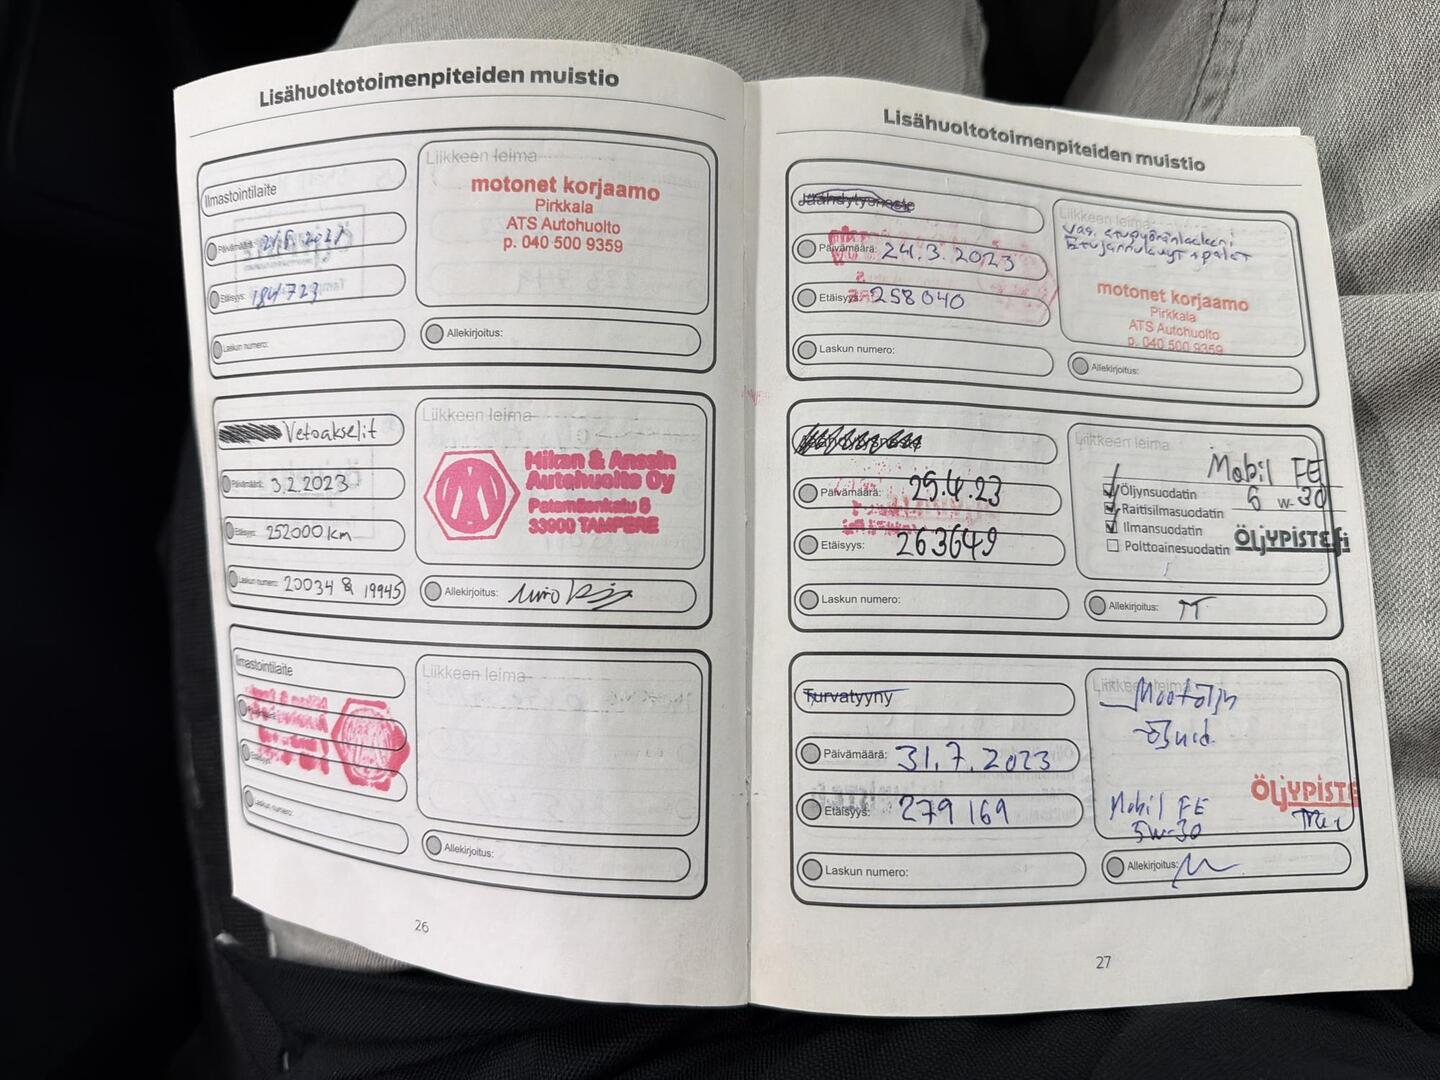 Lisähuoltotoimenpiteiden muistio
Ilmastointilaite
Päivämäärä:
Etäisyys: 184723
Laskun numero:
Liikkeen leima
motonet korjaamo
Pirkkala
ATS Autohuolto
p. 040 500 9359
Allekirjoitus:
Vetoakselit
Päivämäärä: 3.2.2023
Etäisyys: 252000 km
Laskun numero: 20034 & 19945
Liikkeen leima
Mikan & Anssin
Autohuolto Oy
Patamäenkatu 5
33900 TAMPERE
Allekirjoitus:
Ilmastointilaite
Päivämäärä:
Etäisyys:
Laskun numero:
Liikkeen leima
Allekirjoitus:
26
Lisähuoltotoimenpiteiden muistio
Jäähdytysneste
Päivämäärä: 24.3.2023
Etäisyys: 258040
Laskun numero:
Liikkeen leima
Vas. etupyöränlaakeri
Etujarrulevyt + palat
motonet korjaamo
Pirkkala
ATS Autohuolto
p. 040 500 9359
Allekirjoitus:
Jäähdytysneste
Päivämäärä: 25.4.23
Etäisyys: 263649
Laskun numero:
Liikkeen leima
Mobil FE
5 w-30
Öljynsuodatin
Raitisilmasuodatin
Ilmansuodatin
Polttoainesuodatin
ÖLJYPISTE.fi
Allekirjoitus:
Turvatyyny
Päivämäärä: 31.7.2023
Etäisyys: 279 169
Laskun numero:
Liikkeen leima
Moot.öljy
Mobil FE
5w-30
ÖLJYPISTE
Allekirjoitus:
27